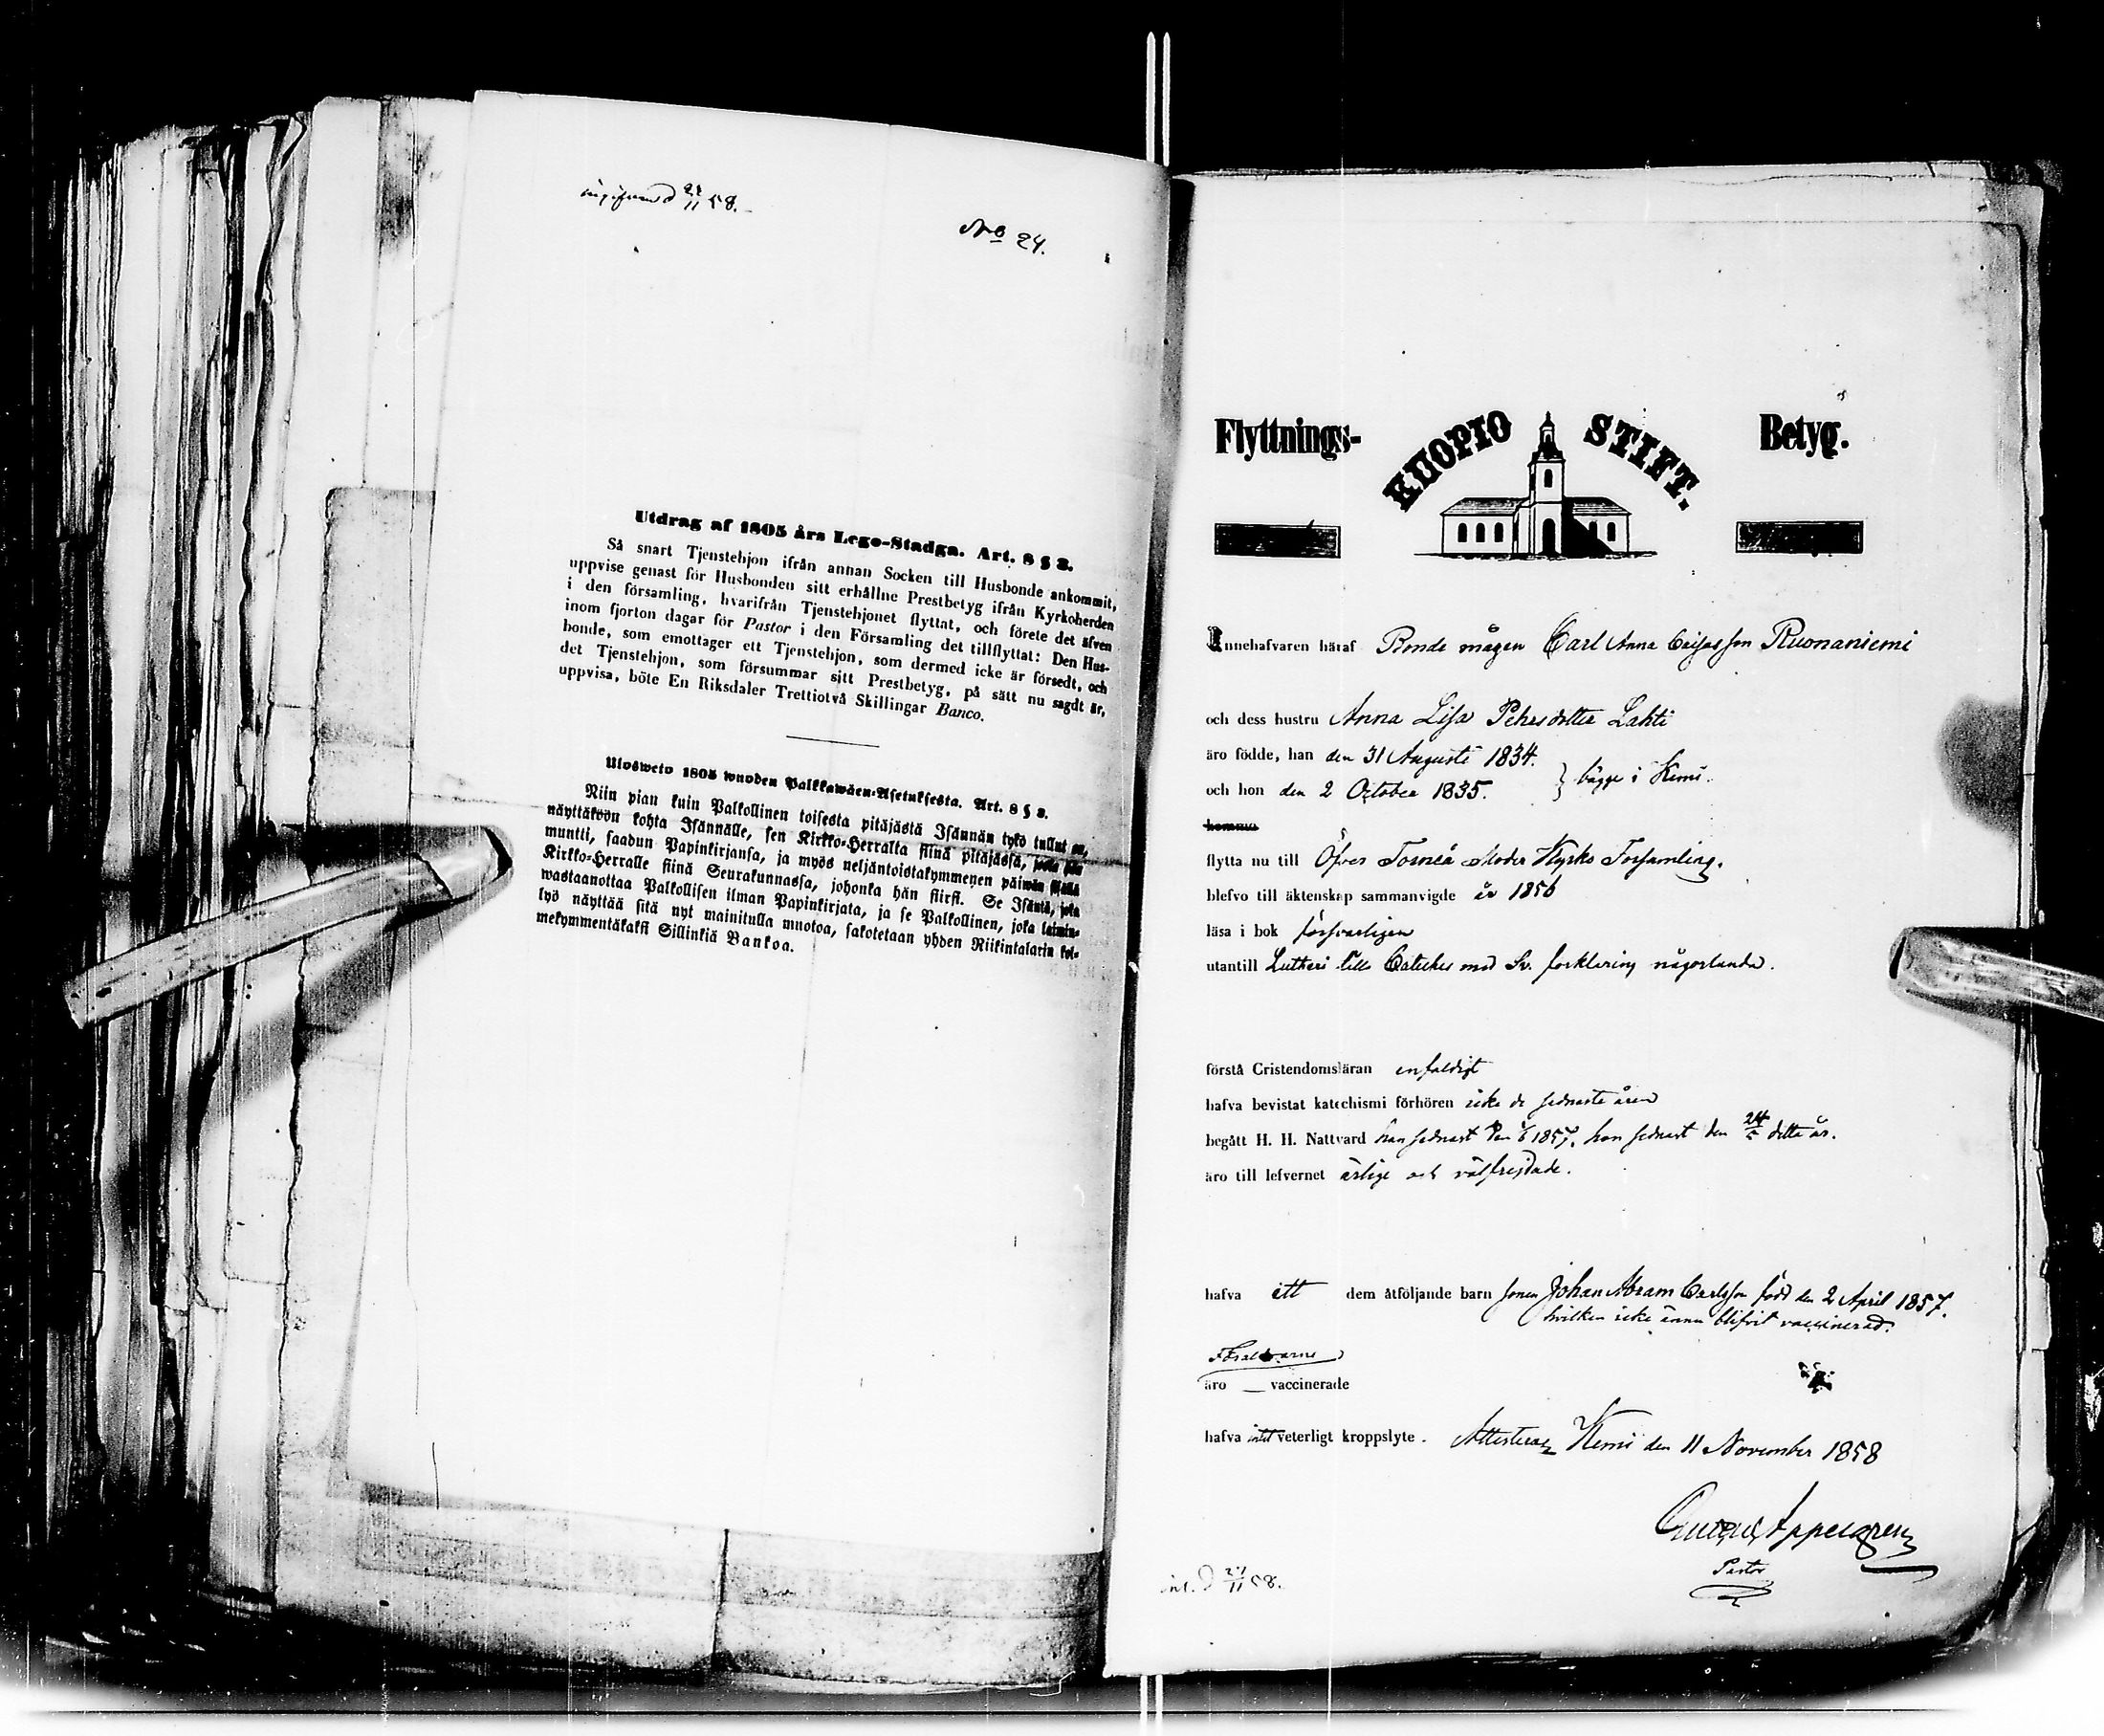 d 27/11 58.
No 24.
Utdrag af 1805 års Lego-Stadga. Art. 8 § 3.
Så snart Tjenstehjon ifrån annan Socken till Husbonde ankommit,
uppvise genast för Husbonden sitt erhållne Prestbetyg ifrån Kyrkoherden
i den församling, hvarifrån Tjenstehjonet flyttat, och förete det äfven
inom fjorton dagar för Pastor i den Församling det tillflyttat: Den Hus-
bonde, som emottager ett Tjenstehjon, som dermed icke är försedt, och
det Tjenstehjon, som försummar sitt Prestbetyg, på sätt nu sagdt är,
uppvisa, böte En Riksdaler Trettiotvå Skillingar Banco.
Ulosweto 1805 wuoden Palkkawäen-Asetuksesta. Art. 8 § 3.
Niin pian kuin Palkollinen toisesta pitäjästä Isännän tykö tullut on,
näyttäköön kohta Isännälle, sen Kirkko-Herralta siinä pitäjässä, josta hän
muutti, saadun Papinkirjansa, ja myös neljäntoistakymmenen päiwän sisällä
Kirkko-Herralle siinä Seurakunnassa, johonka hän siirsi. Se Isäntä, joka
wastaanottaa Palkollisen ilman Papinkirjata, ja se Palkollinen, joka laimin-
lyö näyttää sitä nyt mainitulla muotoa, sakotetaan yhden Riikintalarin kol-
mekymmentäkaksi Sillinkiä Bankoa.
Flyttnings- KUOPIO STIFT. Betyg.
Innehafvaren häraf Bonde mågen Carl Anna Caisasson Ruonaniemi
och dess hustru Anna Lisa Pehrsdotter Lahti
äro födde, han den 31 Augusti 1834.
och hon den 2 October 1835. } bägge i Kemi.
komma
flytta nu till Öfver Torneå Moder Kyrko Församling.
blefvo till äktenskap sammanvigde år 1856
läsa i bok försvarligen
utantill Lutheri lilla Catches med Sv. forklaring någorlunda.
förstå Cristendomsläran enfaldigt
hafva bevistat katechismi förhören icke de sednaste åren
begått H. H. Nattvard han sednast den 1857. hon sednast den 24/5 detta år.
äro till lefvernet ärlige och välfrejdade.
hafva ett dem åtföljande barn sonen Johan Abram Carlsson född den 2 April 1857.
hvilken icke ännu blifvit vaccinerad.
Föräldrarne
äro — vaccinerade
hafva intet veterligt kroppslyte. Attesterar Kemi den 11 November 1858
Appelgren
Pastor
inl. d 27/11 58.